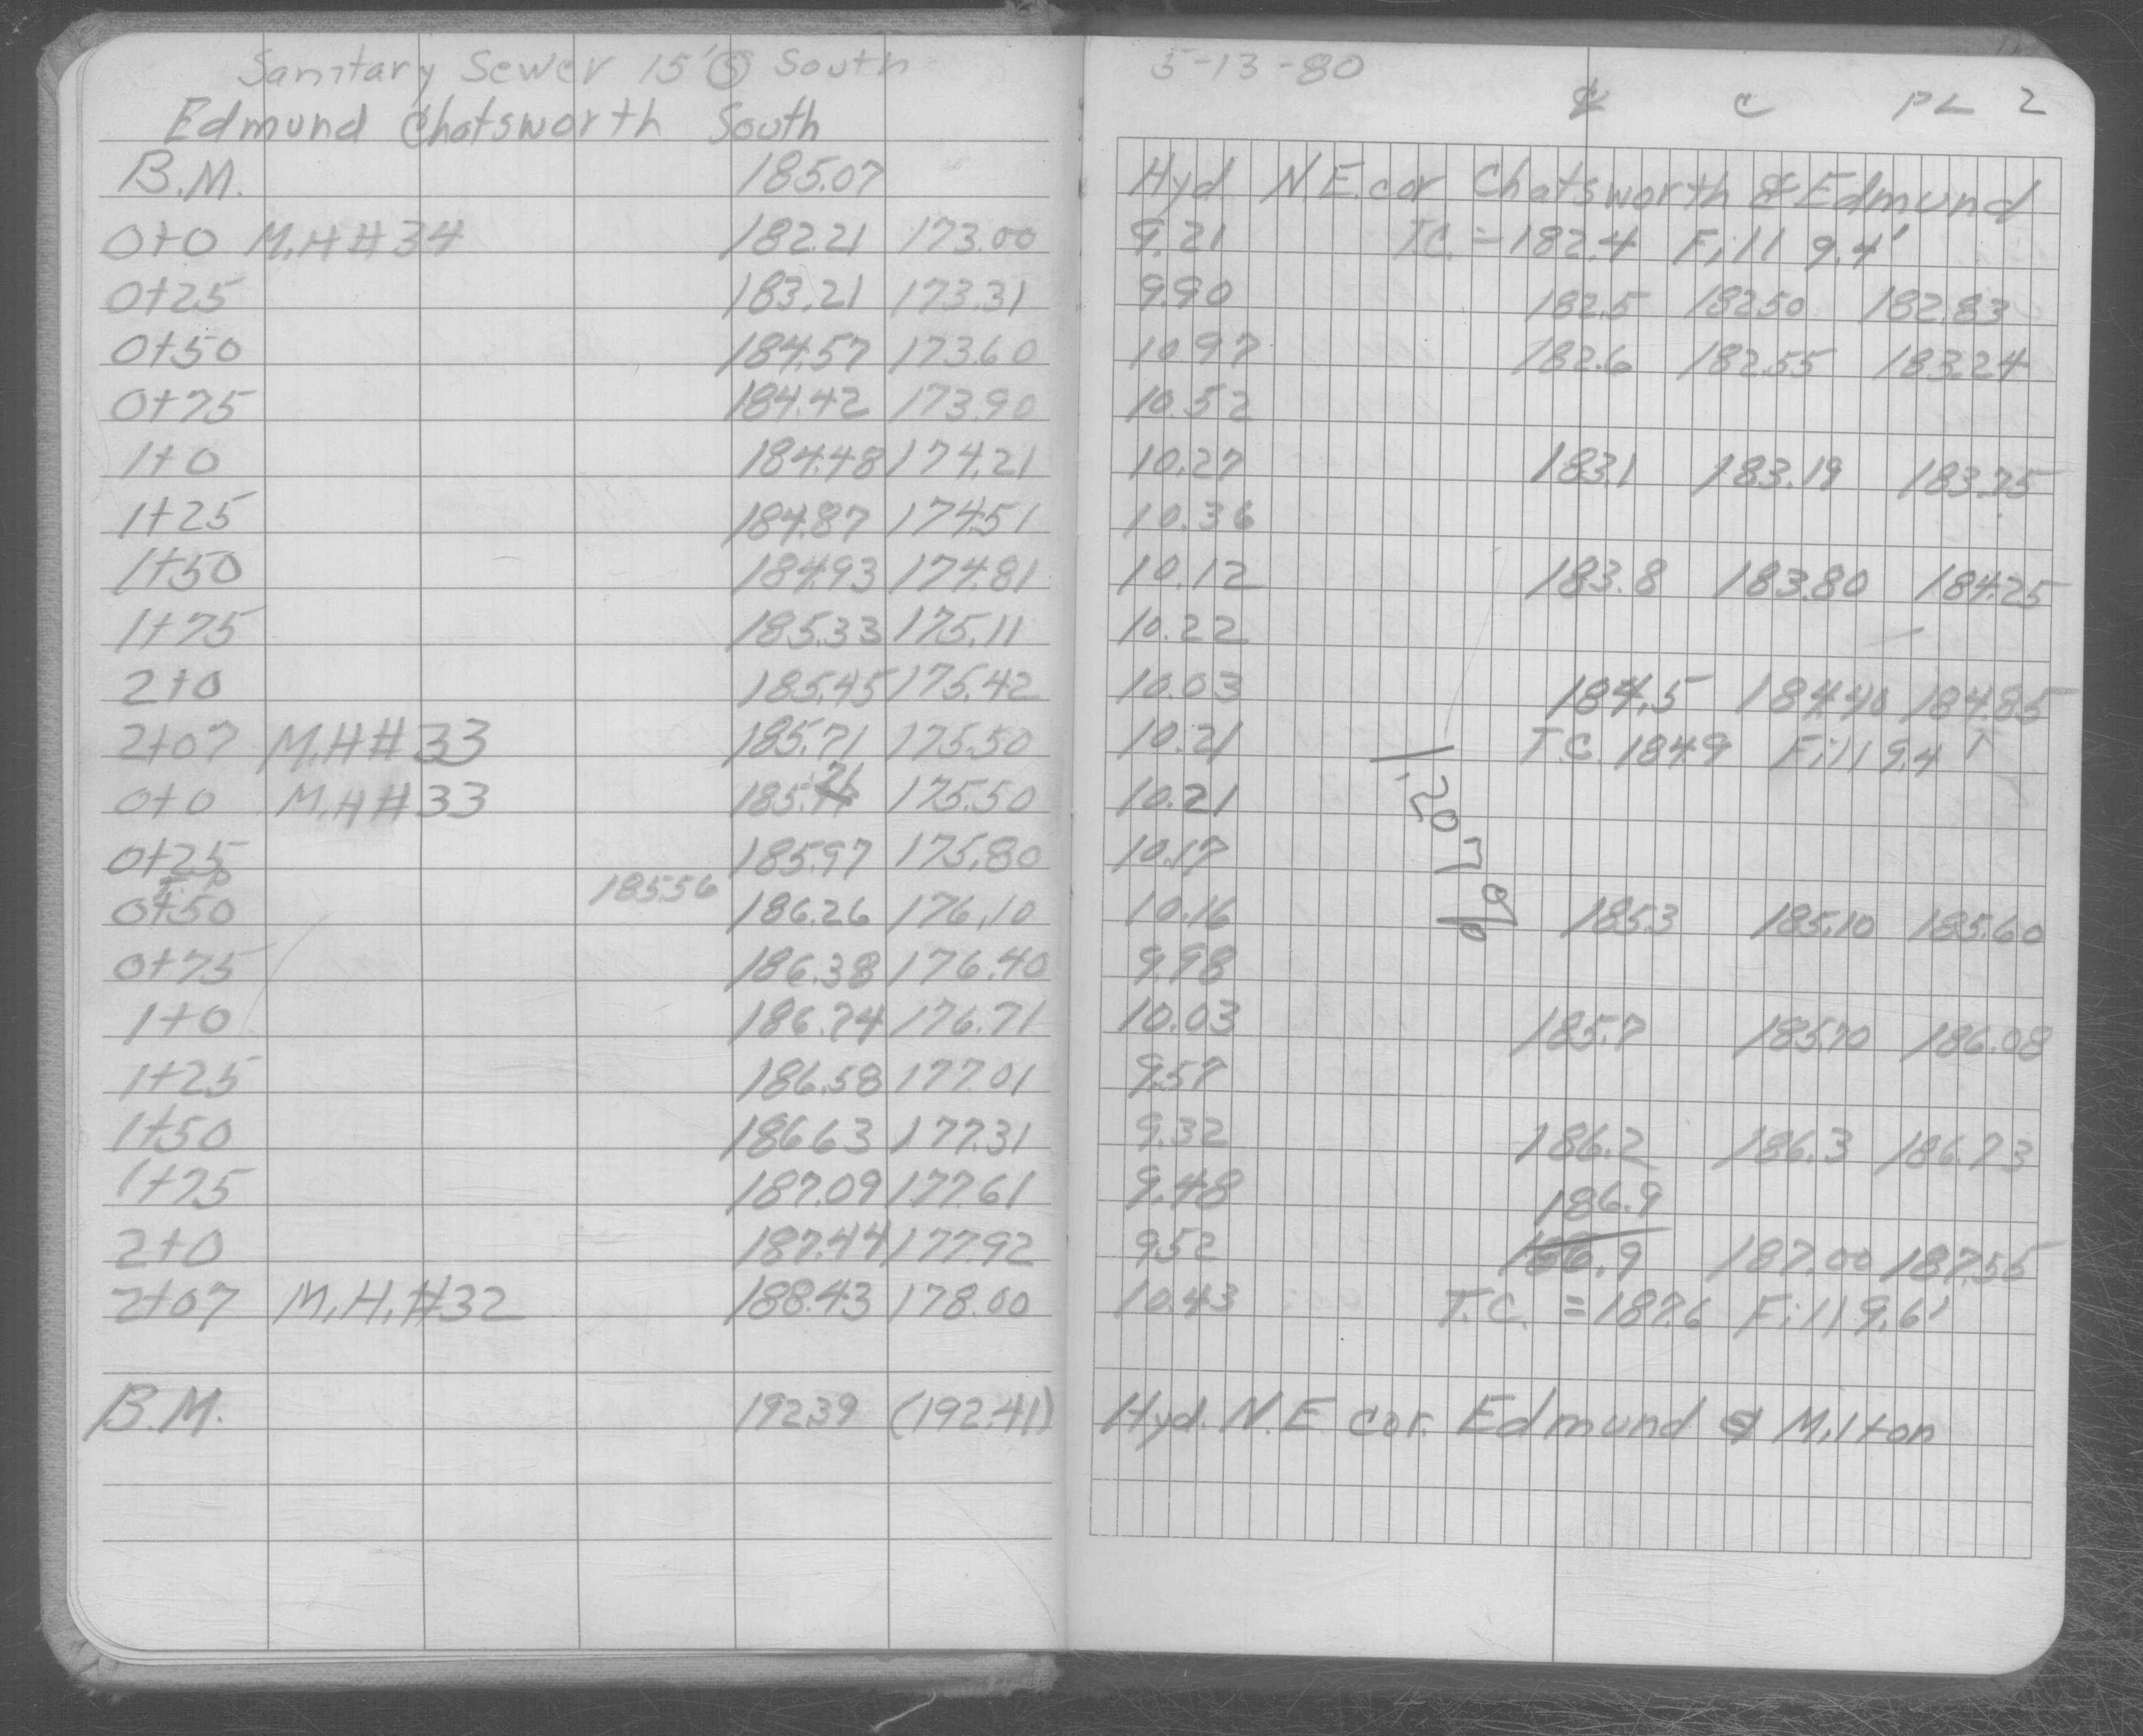 Sanitary Sewer 15' Ⓢ South
Edmund Chatsworth South
B.M. 185.07
0+0 M.H #34 182.21 173.00
0+25 183.21 173.31
0+50 184.57 173.60
0+75 184.42 173.90
1+0 184.48 174.21
1+25 184.87 174.51
1+50 184.93 174.81
1+75 185.33 175.11
2+0 185.45 175.42
2+07 M.H #33 185.71 175.50
0+0 M.H #33 185.71 175.50
0+25 185.97 175.80
185.56
0+50 186.26 176.10
0+75 186.38 176.40
1+0 186.74 176.71
1+25 186.58 177.01
1+50 186.63 177.31
1+75 187.09 177.61
2+0 187.44 177.92
2+07 M.H. #32 188.43 178.00
B.M. 192.39 (192.41)
5-13-80
℄ C PL 2
Hyd. N.E. cor. Chatsworth & Edmund
9.21 T.C. = 182.4 Fill 9.4'
9.90 182.5 182.50 182.83
10.97 182.6 182.55 183.24
10.52
10.27 183.1 183.19 183.75
10.36
10.12 183.8 183.80 184.25
10.22
10.03 184.5 184.40 184.85
10.21 T.C. 184.9 Fill 9.4'
10.21
1.207%
10.17
10.16 185.3 185.10 185.60
9.98
10.03 185.7 185.70 186.08
9.57
9.32 186.2 186.3 186.73
9.48 186.9
9.52 186.9 187.00 187.55
10.43 T.C. = 187.6 Fill 9.6'
Hyd. N.E. cor. Edmund & Milton